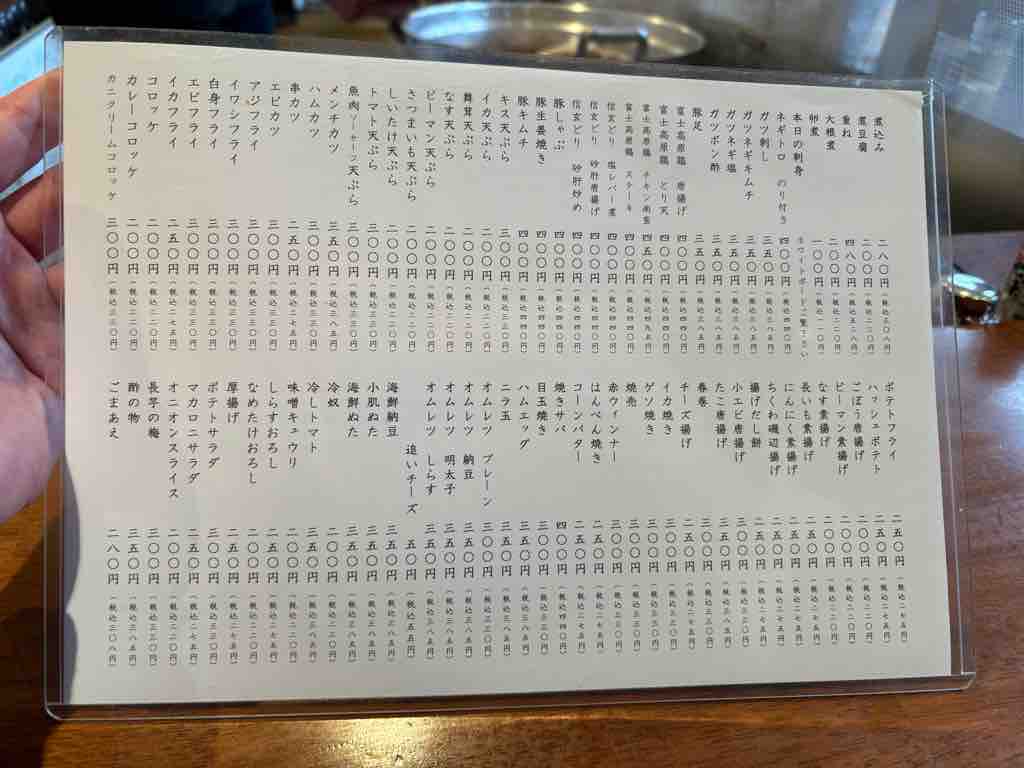 煮込み 二八〇円(税込三〇八円)
煮豆腐 二〇〇円(税込二二〇円)
重ね 四八〇円(税込五二八円)
大根煮 二〇〇円(税込二二〇円)
卵煮 一〇〇円(税込一一〇円)
本日の刺身 ホワイトボードご覧下さい
ネギトロ のり付き 四〇〇円(税込四四〇円)
ガツ刺し 三五〇円(税込三八五円)
ガツネギキムチ 三五〇円(税込三八五円)
ガツネギ塩 三五〇円(税込三八五円)
ガツポン酢 三五〇円(税込三八五円)
豚足 三五〇円(税込三八五円)
富士高原鶏 唐揚げ 四〇〇円(税込四四〇円)
富士高原鶏 とり天 四〇〇円(税込四四〇円)
富士高原鶏 チキン南蛮 四五〇円(税込四九五円)
富士高原鶏 ステーキ 四〇〇円(税込四四〇円)
信玄どり 塩レバー煮 四〇〇円(税込四四〇円)
信玄どり 砂肝唐揚げ 四〇〇円(税込四四〇円)
信玄どり 砂肝炒め 四〇〇円(税込四四〇円)
豚しゃぶ 四〇〇円(税込四四〇円)
豚生姜焼き 四〇〇円(税込四四〇円)
豚キムチ 四〇〇円(税込四四〇円)
キス天ぷら 三〇〇円(税込三三〇円)
イカ天ぷら 二〇〇円(税込二二〇円)
舞茸天ぷら 二〇〇円(税込二二〇円)
なす天ぷら 二〇〇円(税込二二〇円)
ピーマン天ぷら 二〇〇円(税込二二〇円)
さつまいも天ぷら 二〇〇円(税込二二〇円)
しいたけ天ぷら 二〇〇円(税込二二〇円)
トマト天ぷら 三〇〇円(税込三三〇円)
魚肉ソーセージ天ぷら 三〇〇円(税込三三〇円)
メンチカツ 三五〇円(税込三八五円)
ハムカツ 三〇〇円(税込三三〇円)
串カツ 二五〇円(税込二七五円)
エビカツ 三〇〇円(税込三三〇円)
アジフライ 三〇〇円(税込三三〇円)
イワシフライ 三〇〇円(税込三三〇円)
白身フライ 三〇〇円(税込三三〇円)
エビフライ 三〇〇円(税込三三〇円)
イカフライ 二五〇円(税込二七五円)
コロッケ 二〇〇円(税込二二〇円)
カレーコロッケ 二〇〇円(税込二二〇円)
カニクリームコロッケ 三〇〇円(税込三三〇円)
ポテトフライ 二五〇円(税込二七五円)
ハッシュポテト 二五〇円(税込二七五円)
ごぼう唐揚げ 二〇〇円(税込二二〇円)
ピーマン素揚げ 二〇〇円(税込二二〇円)
なす素揚げ 二〇〇円(税込二二〇円)
長いも素揚げ 二五〇円(税込二七五円)
にんにく素揚げ 二五〇円(税込二七五円)
ちくわ磯辺揚げ 二五〇円(税込二七五円)
揚げだし餅 二五〇円(税込二七五円)
小エビ唐揚げ 三〇〇円(税込三三〇円)
たこ唐揚げ 二五〇円(税込二七五円)
春巻 三〇〇円(税込三三〇円)
チーズ揚げ 二五〇円(税込二七五円)
イカ焼き 三〇〇円(税込三三〇円)
ゲソ焼き 三〇〇円(税込三三〇円)
焼売 三〇〇円(税込三三〇円)
赤ウィンナー 三〇〇円(税込三三〇円)
はんぺん焼き 二五〇円(税込二七五円)
コーンバター 二五〇円(税込二七五円)
焼きサバ 四〇〇円(税込四四〇円)
目玉焼き 三〇〇円(税込三三〇円)
ハムエッグ 三五〇円(税込三八五円)
ニラ玉 三五〇円(税込三八五円)
オムレツ プレーン 三〇〇円(税込三三〇円)
オムレツ 納豆 三五〇円(税込三八五円)
オムレツ 明太子 三五〇円(税込三八五円)
オムレツ しらす 三五〇円(税込三八五円)
追いチーズ 五〇円(税込五五円)
海鮮納豆 三五〇円(税込三八五円)
小肌ぬた 三五〇円(税込三八五円)
海鮮ぬた 三五〇円(税込三八五円)
冷奴 二〇〇円(税込二二〇円)
冷しトマト 三五〇円(税込三八五円)
味噌キュウリ 二〇〇円(税込二二〇円)
しらすおろし 二五〇円(税込二七五円)
なめたけおろし 二〇〇円(税込二二〇円)
厚揚げ 二五〇円(税込二七五円)
ポテトサラダ 三〇〇円(税込三三〇円)
マカロニサラダ 二五〇円(税込二七五円)
オニオンスライス 二〇〇円(税込二二〇円)
長芋の梅 三〇〇円(税込三三〇円)
酢の物 三五〇円(税込三八五円)
ごまあえ 二八〇円(税込三〇八円)